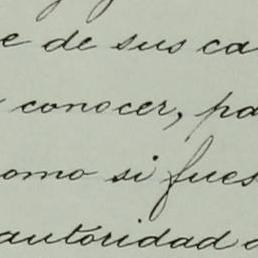 e de sus ca
conocer, pa
omo si fues
autoridad